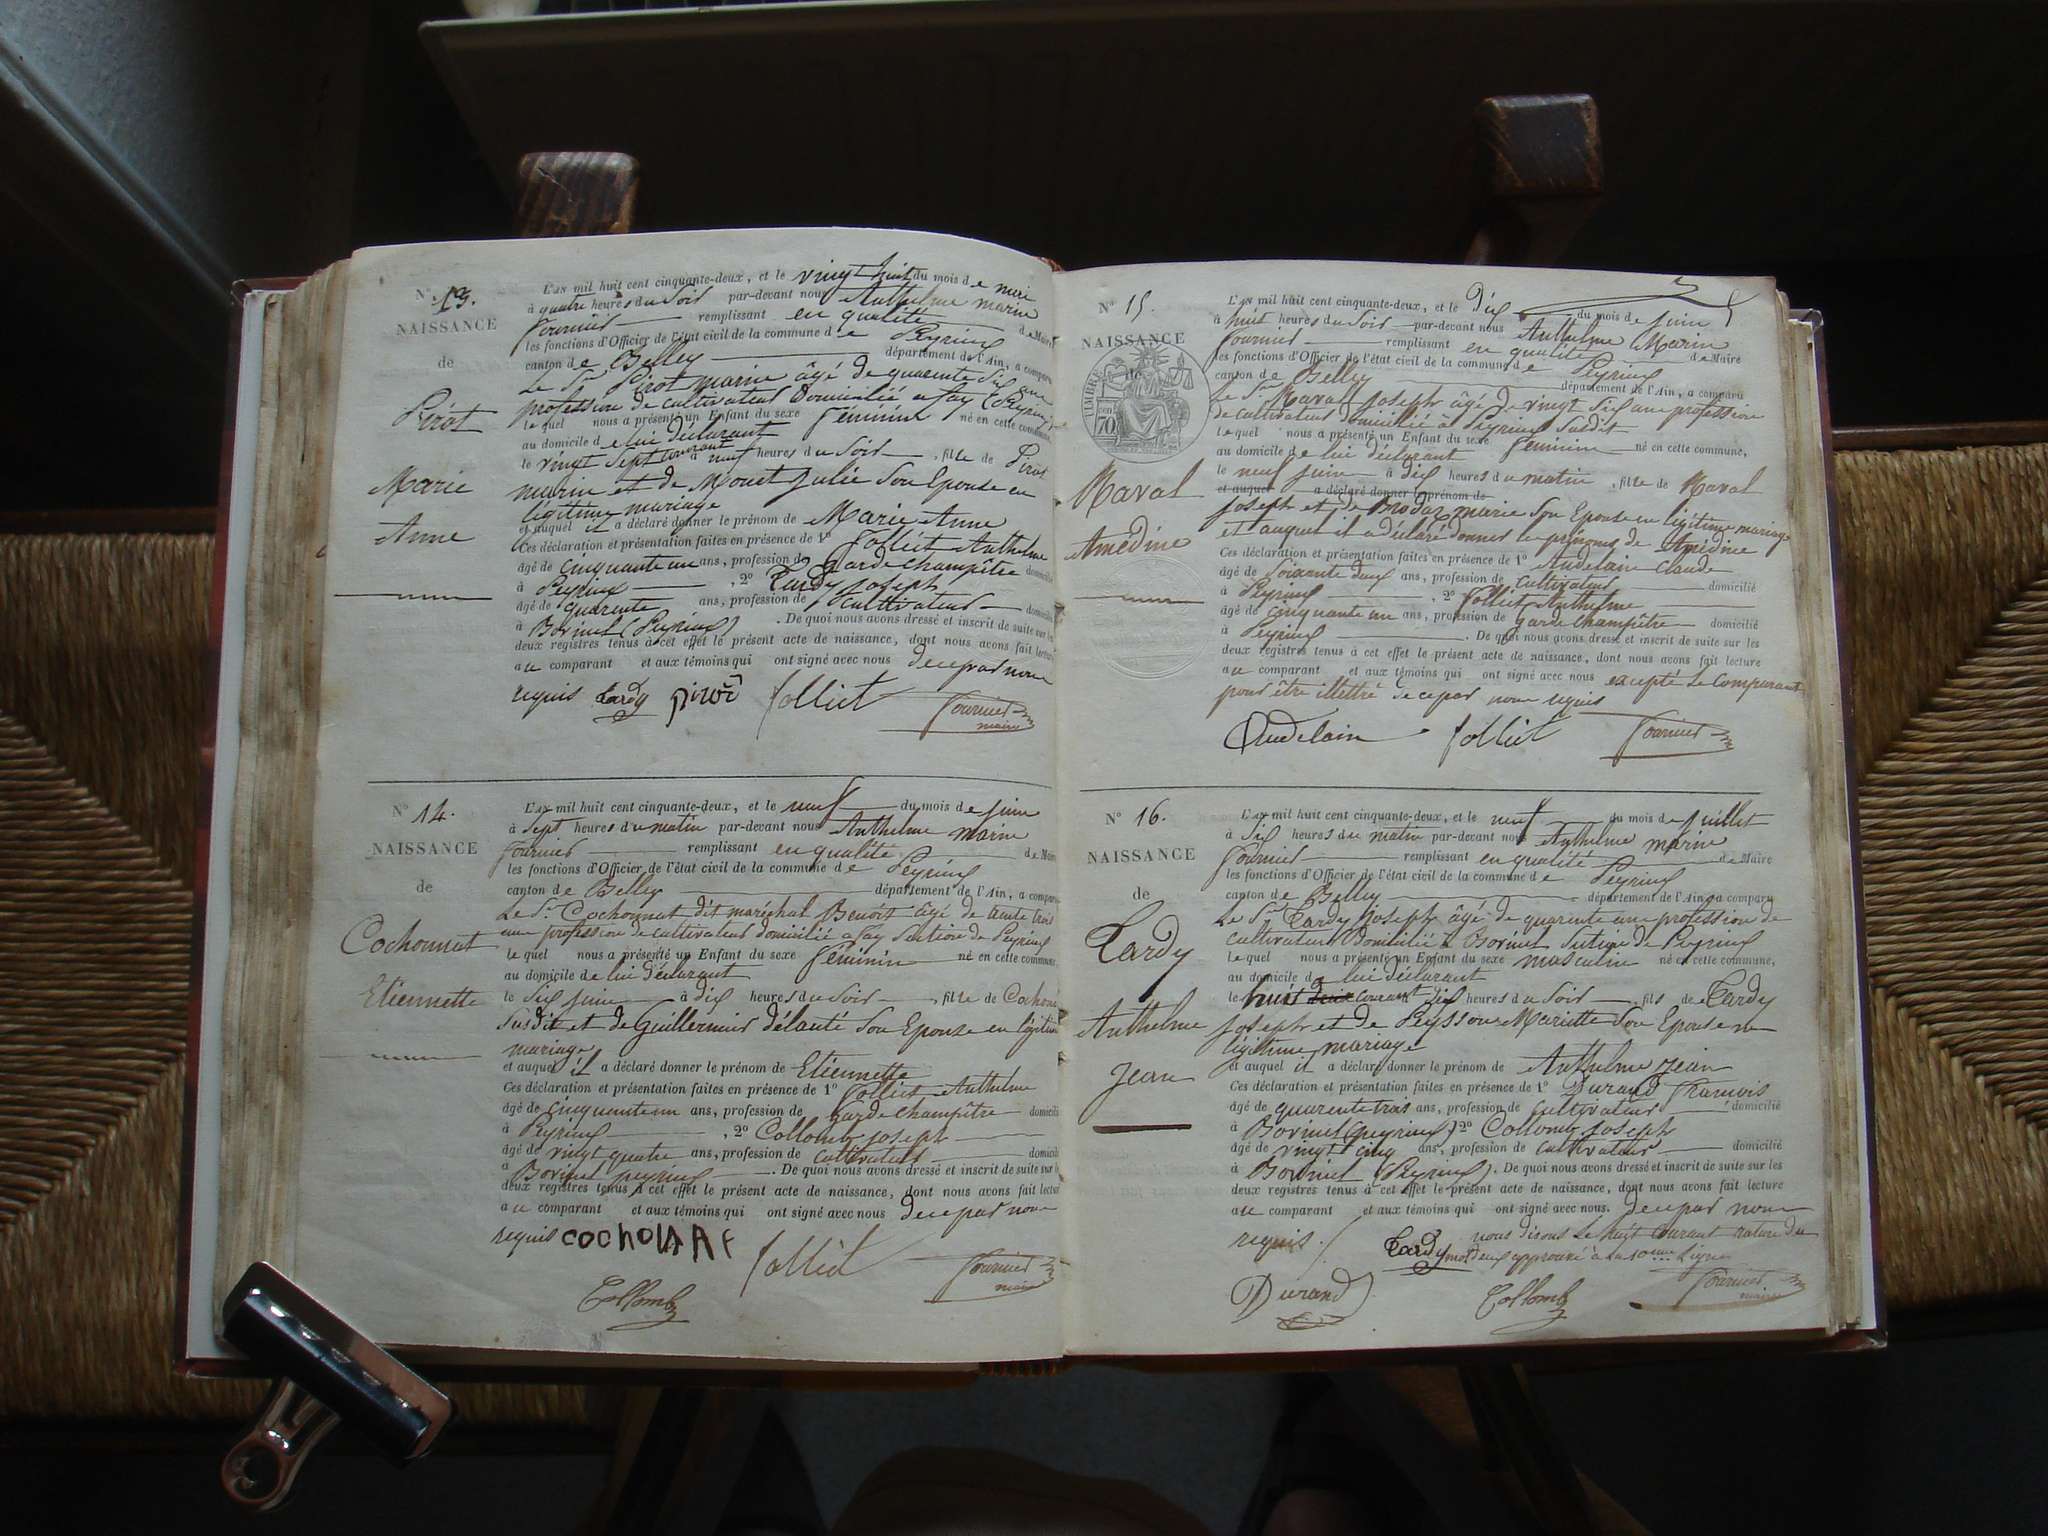 N° 13.
NAISSANCE
de
Pirot
Marie
Anne
L'AN mil huit cent cinquante-deux, et le vingt huit du mois de mai
à quatre heures du Soir par-devant nous Anthelme marin
fournier remplissant en qualité de Maire
les fonctions d'Officier de l'état civil de la commune de Peyrieu
canton de Belley département de l'Ain, a comparu
Le Sr. Pirot marin âgé de quarante six ans
profession de cultivateur Domicilié a fay (Peyrieu)
lequel nous a présenté un Enfant du sexe féminin né en cette commune,
au domicile de lui déclarant
le vingt sept courant à neuf heures du Soir, fille de Pirot
marin et de Monet Julie Son Epouse en
légitime mariage
et auquel il a déclaré donner le prénom de Marie Anne
Ces déclaration et présentation faites en présence de 1° folliet Anthelme
âgé de cinquante un ans, profession de garde champêtre domicilié
à Peyrieu, 2° Tardy joseph
âgé de quarente ans, profession de cultivateur domicilié
à Borinet (Peyrieu). De quoi nous avons dressé et inscrit de suite sur les
deux registres tenus à cet effet le présent acte de naissance, dont nous avons fait lecture
au comparant et aux témoins qui ont signé avec nous de ce par nous
requis Tardy pirot folliet fournier
maire
N° 14.
NAISSANCE
de
Cochonnat
Etiennette
L'AN mil huit cent cinquante-deux, et le neuf du mois de juin
à sept heures du matin par-devant nous Anthelme marin
fournier remplissant en qualité de Maire
les fonctions d'Officier de l'état civil de la commune de Peyrieu
canton de Belley département de l'Ain, a comparu
Le Sr. Cochonnat dit maréchal Benoit âgé de trente trois
ans profession de cultivateur domicilié a fay Section de Peyrieu
lequel nous a présenté un Enfant du sexe féminin né en cette commune,
au domicile de lui déclarant
le Six juin à dix heures du Soir, fille de Cochonnat
Susdit et de Guillermier Son Epouse en légitime
mariage
et auquel il a déclaré donner le prénom de Etiennette
Ces déclaration et présentation faites en présence de 1° folliet Anthelme
âgé de cinquante un ans, profession de garde champêtre domicilié
à Peyrieu, 2° Collomb joseph
âgé de vingt quatre ans, profession de cultivateur domicilié
à Borinet peyrieu. De quoi nous avons dressé et inscrit de suite sur les
deux registres tenus à cet effet le présent acte de naissance, dont nous avons fait lecture
au comparant et aux témoins qui ont signé avec nous de ce par nous
requis folliet fournier
maire
Collomb
N° 15.
NAISSANCE
de
TIMBRE
70
Raval
Amédine
L'AN mil huit cent cinquante-deux, et le Dix du mois de juin
à huit heures du Soir par-devant nous Anthelme Marin
fournier remplissant en qualité de Maire
les fonctions d'Officier de l'état civil de la commune de Peyrieu
canton de Belley département de l'Ain, a comparu
Le Sr. Raval joseph âgé de vingt Six ans profession
de cultivateur domicilié à Peyrieu Susdit
lequel nous a présenté un Enfant du sexe féminin né en cette commune,
au domicile de lui déclarant
le neuf juin à dix heures du matin, fille de Raval
et auquel a déclaré donner le prénom de
joseph et de Brodar marie Son Epouse en légitime mariage
et auquel il a déclaré donner le prénoms de Amédine
Ces déclaration et présentation faites en présence de 1° Audelain Claude
âgé de Soixante deux ans, profession de cultivateur domicilié
à Peyrieu, 2° folliet Anthelme
âgé de cinquante un ans, profession de garde champêtre domicilié
à Peyrieu. De quoi nous avons dressé et inscrit de suite sur les
deux registres tenus à cet effet le présent acte de naissance, dont nous avons fait lecture
au comparant et aux témoins qui ont signé avec nous excepté le Comparant
pour être illettré de ce par nous requis
Audelain folliet fournier
N° 16.
NAISSANCE
de
Tardy
Anthelme
Jean
L'AN mil huit cent cinquante-deux, et le neuf du mois de juillet
à Six heures du matin par-devant nous Anthelme marin
fournier remplissant en qualité de Maire
les fonctions d'Officier de l'état civil de la commune de Peyrieu
canton de Belley département de l'Ain, a comparu
Le Sr. Tardy joseph âgé de quarente ans profession de
cultivateur Domicilié à Borinet Section de Peyrieu
lequel nous a présenté un Enfant du sexe masculin né en cette commune,
au domicile de lui déclarant
le huit deux courant dix heures du Soir, fils de Tardy
joseph et de Peysson Mariette Son Epouse en
légitime mariage
et auquel il a déclaré donner le prénom de Anthelme jean
Ces déclaration et présentation faites en présence de 1° Durand francois
âgé de quarente trois ans, profession de cultivateur domicilié
à Borinet (peyrieu) 2° Collomb joseph
âgé de vingt cinq ans, profession de cultivateur domicilié
à Borinet (Peyrieu). De quoi nous avons dressé et inscrit de suite sur les
deux registres tenus à cet effet le présent acte de naissance, dont nous avons fait lecture
au comparant et aux témoins qui ont signé avec nous. de ce par nous
requis. nous disons le huit courant rature du
Tardy mot deux approuvé à la 10eme Ligne
Durand Collomb fournier
maire